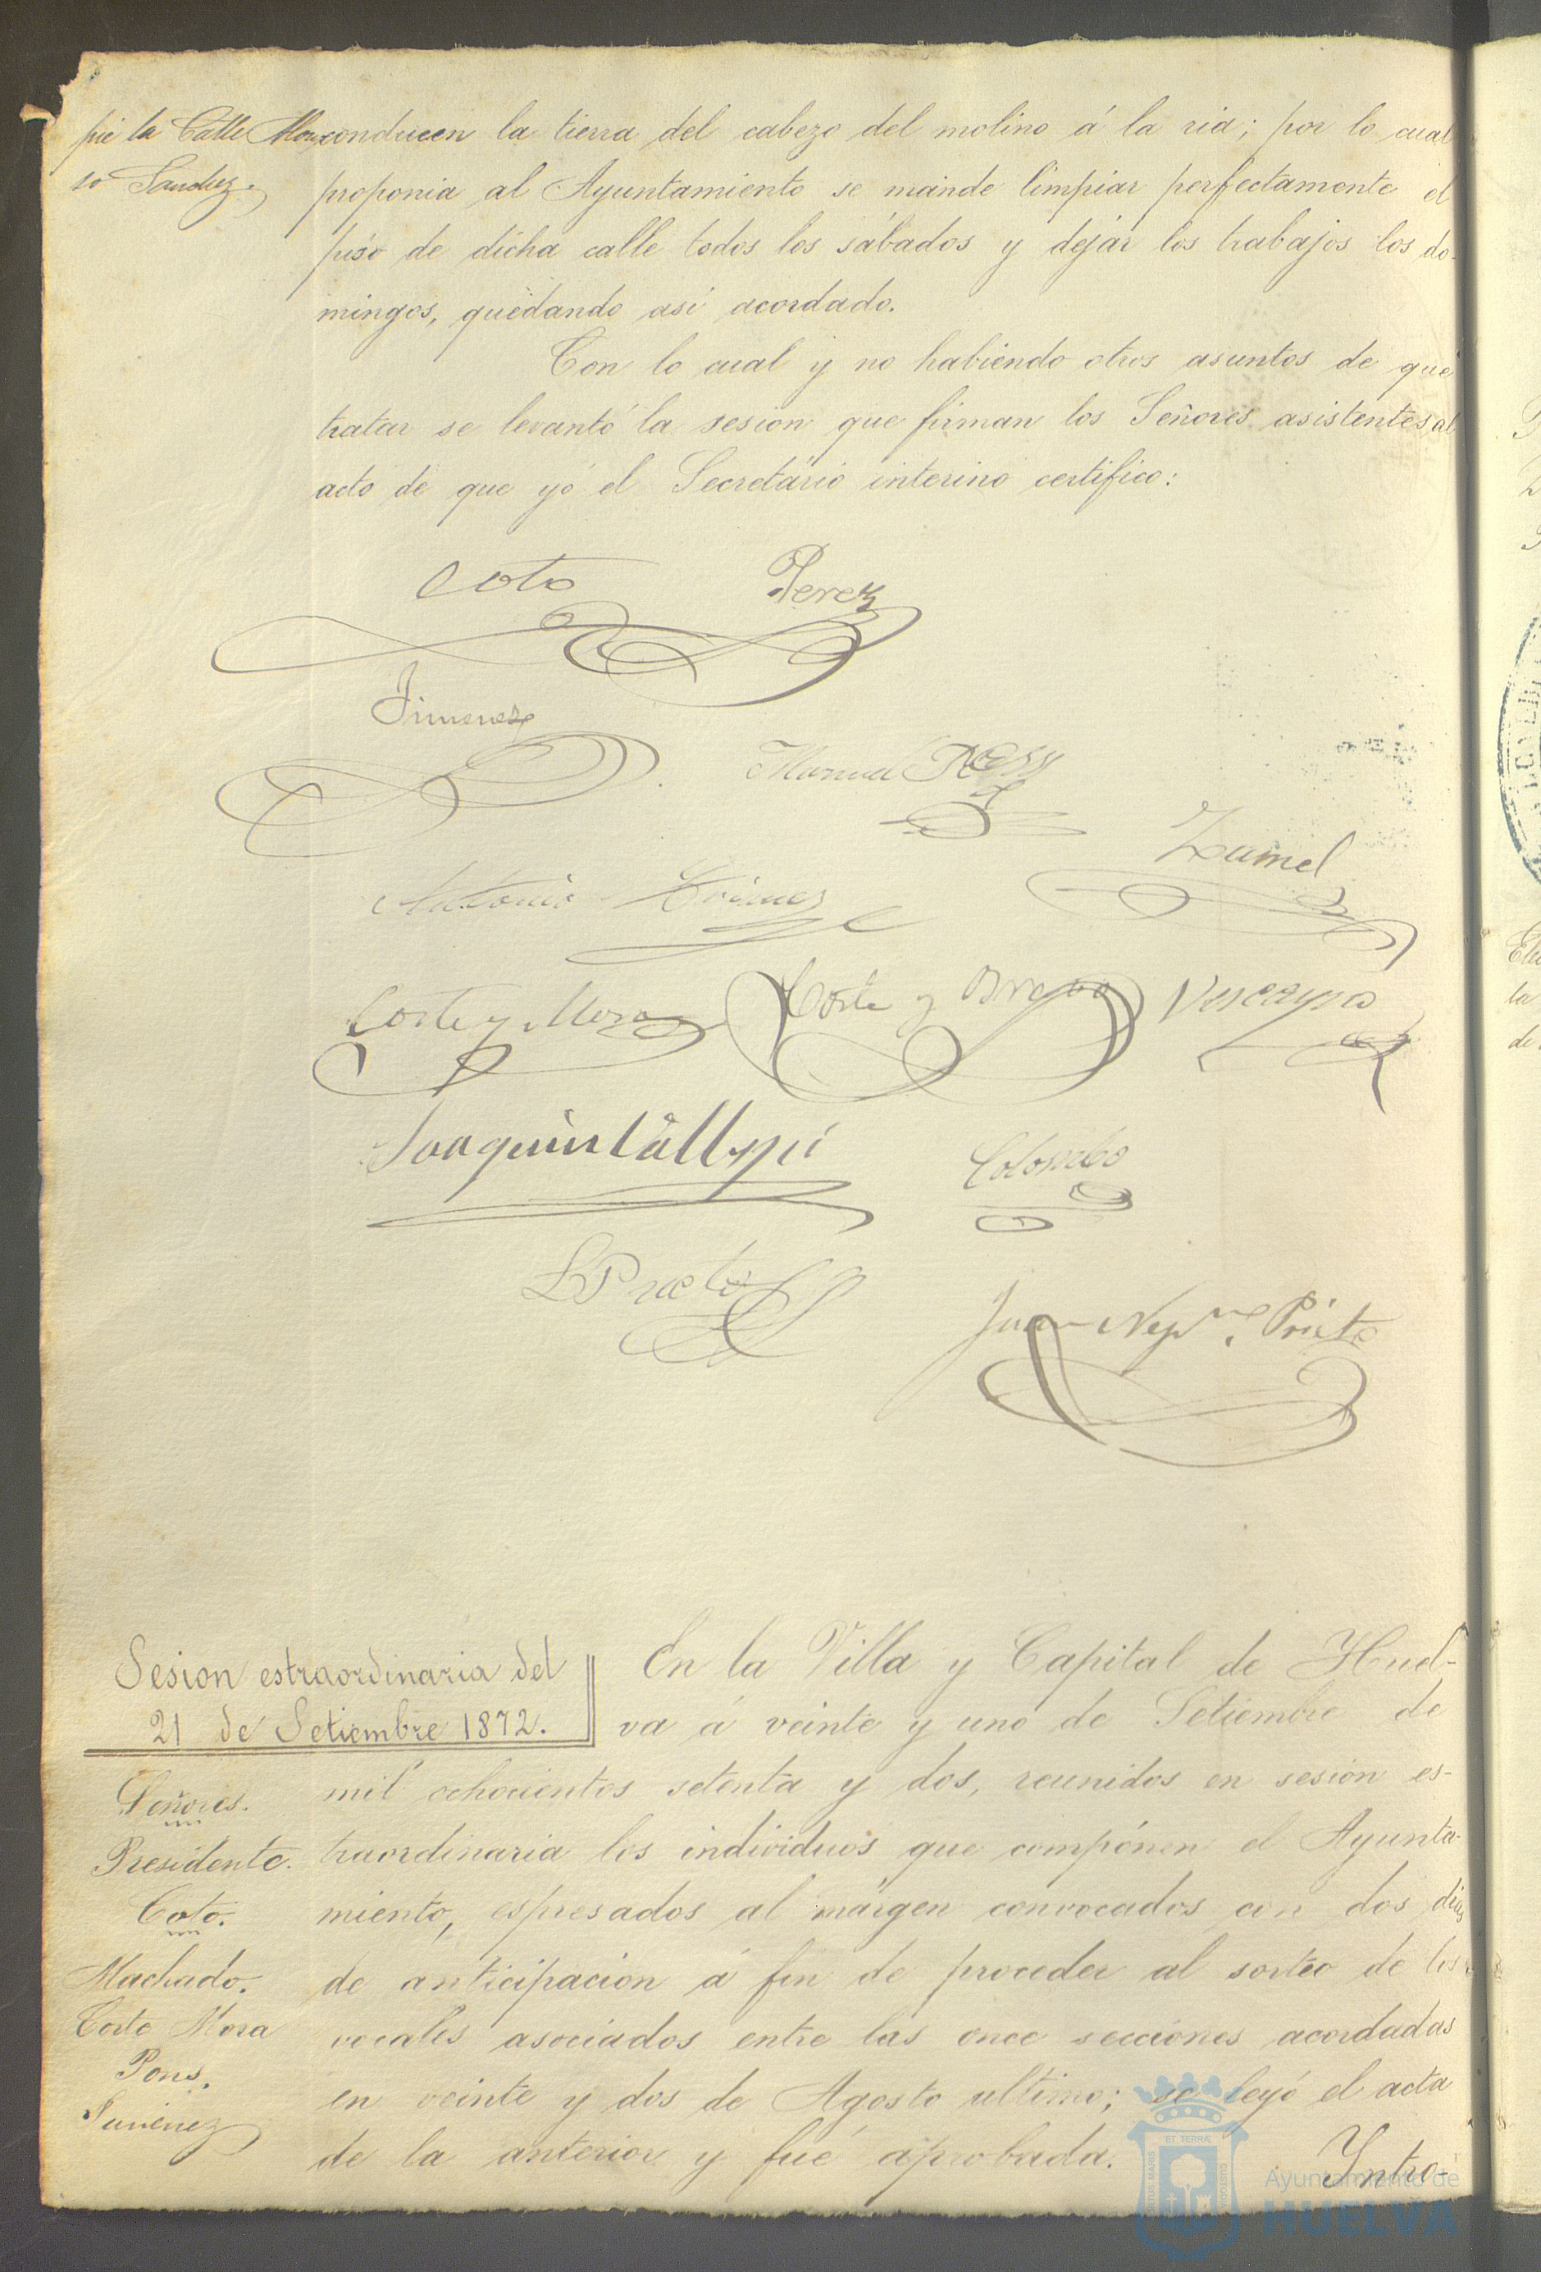 pié la Calle Alon-
so Sanchez.
conducen la tierra del cabezo del molino á la ria; por lo cual
proponia al Ayuntamiento se mande limpiar perfectamente el
piso de dicha calle todos los sábados y dejar los trabajos los do-
mingos, quedando asi acordado.
Con lo cual y no habiendo otros asuntos de que
tratar se levantó la sesion que firman los Señores asistentes al
acto de que yo el Secretario interino certifico:
Coto Perez
Jimenez
Manuel
Zamel
Antonio
Corte y Mora Corte y Bravo Viscayno
Joaquin
Colombo
L Prieto
Juan Nep.no Prieto
Sesion estraordinaria del
21 de Setiembre 1872.
Señores.
Presidente.
Coto.
Machado.
Corte Mora
Pons.
Jimenez
En la Villa y Capital de Huel-
va á veinte y uno de Setiembre de
mil ochocientos setenta y dos, reunidos en sesion es-
traordinaria los individuos que compónen el Ayunta-
miento, espresados al márgen convocados con dos dias
de anticipacion á fin de proceder al sorteo de los
vocales asociados entre las once secciones acordadas
en veinte y dos de Agosto ultimo; se leyó el acta
de la anterior y fué aprobada. Yntro-
Ayuntamiento de
HUELVA